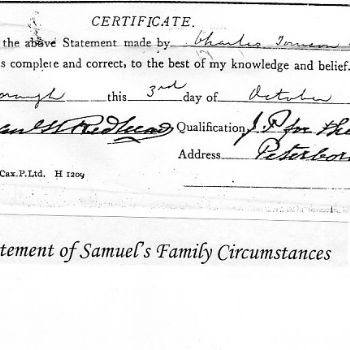 CERTIFICATE.
the above Statement made by Charles
s complete and correct, to the best of my knowledge and belief.
orough this 3rd day of October
Redhead Qualification J.P for the
Address Peterboro
Cax.P.Ltd. H 1209
tement of Samuel's Family Circumstances